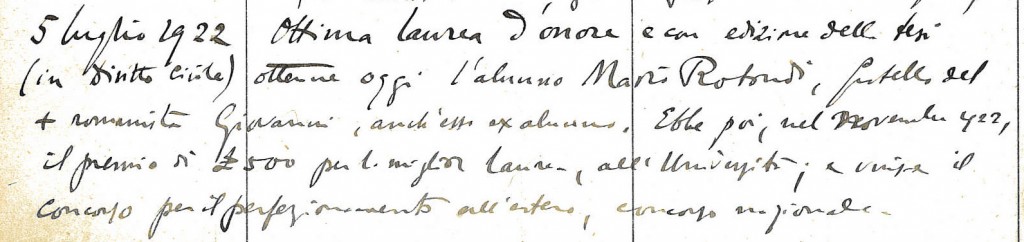 5 luglio 1922 Ottima laurea d'onore e con edizione della tesi
(in Diritto Civile) ottenne oggi l'alunno Mario Rotondi, fratello del
+ romanista Giovanni, anch'esso ex alunno. Ebbe poi, nel novembre 922,
il premio di £ 500 per la miglior laurea, all'Università; e vinse il
concorso per il perfezionamento all'estero, concorso nazionale.